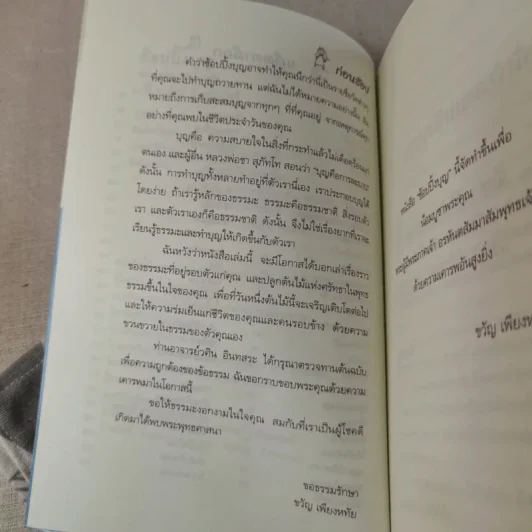 ก่อนช้อป
คำว่าช้อปปิ้งบุญอาจทำให้คุณนึกว่านี่เป็นรายชื่อวัดต่างๆ
ที่คุณจะไปทำบุญถวายทาน แต่ฉันไม่ได้หมายความอย่างนั้น ฉัน
หมายถึงการเก็บสะสมบุญจากทุกๆ ที่ที่คุณอยู่ จากเหตุการณ์ทุก
อย่างที่คุณพบในชีวิตประจำวันของคุณ
บุญคือ ความสบายใจในสิ่งที่กระทำแล้วไม่เดือดร้อนแก่
ตนเอง และผู้อื่น หลวงพ่อชา สุภัทโท สอนว่า "บุญคือการละบาป"
ดังนั้น การทำบุญทั้งหลายทำอยู่ที่ตัวเรานี่เอง เราประกอบบุญได้
โดยง่าย ถ้าเรารู้หลักของธรรมะ ธรรมะคือธรรมชาติ สิ่งรอบตัว
เรา และตัวเราเองก็คือธรรมชาติ ดังนั้น จึงไม่ใช่เรื่องยากที่เราจะ
เรียนรู้ธรรมะและทำบุญให้เกิดขึ้นกับตัวเรา
ฉันหวังว่าหนังสือเล่มนี้ จะมีโอกาสได้บอกเล่าเรื่องราว
ของธรรมะที่อยู่รอบตัวแก่คุณ และปลูกต้นไม้แห่งศรัทธาในพุทธ
ธรรมขึ้นในใจของคุณ เพื่อที่วันหนึ่งต้นไม้นี้จะเจริญเติบโตต่อไป
และให้ความร่มเย็นแก่ชีวิตของคุณและคนรอบข้าง ด้วยความ
ขวนขวายในธรรมของตัวคุณเอง
ท่านอาจารย์วศิน อินทสระ ได้กรุณาตรวจทานต้นฉบับ
เพื่อความถูกต้องของข้อธรรม ฉันขอกราบขอบพระคุณด้วยความ
เคารพมาในโอกาสนี้
ขอให้ธรรมะงอกงามในใจคุณ สมกับที่เราเป็นผู้โชคดี
เกิดมาได้พบพระพุทธศาสนา
ขอธรรมรักษา
ขวัญ เพียงหทัย
หนังสือ "ช้อปปิ้งบุญ" นี้จัดทำขึ้นเพื่อ
น้อมบูชาพระคุณ
อรหันตสัมมาสัมพุทธเจ้า
ด้วยความเคารพอันสูงยิ่ง
ขวัญ เพียงหทัย